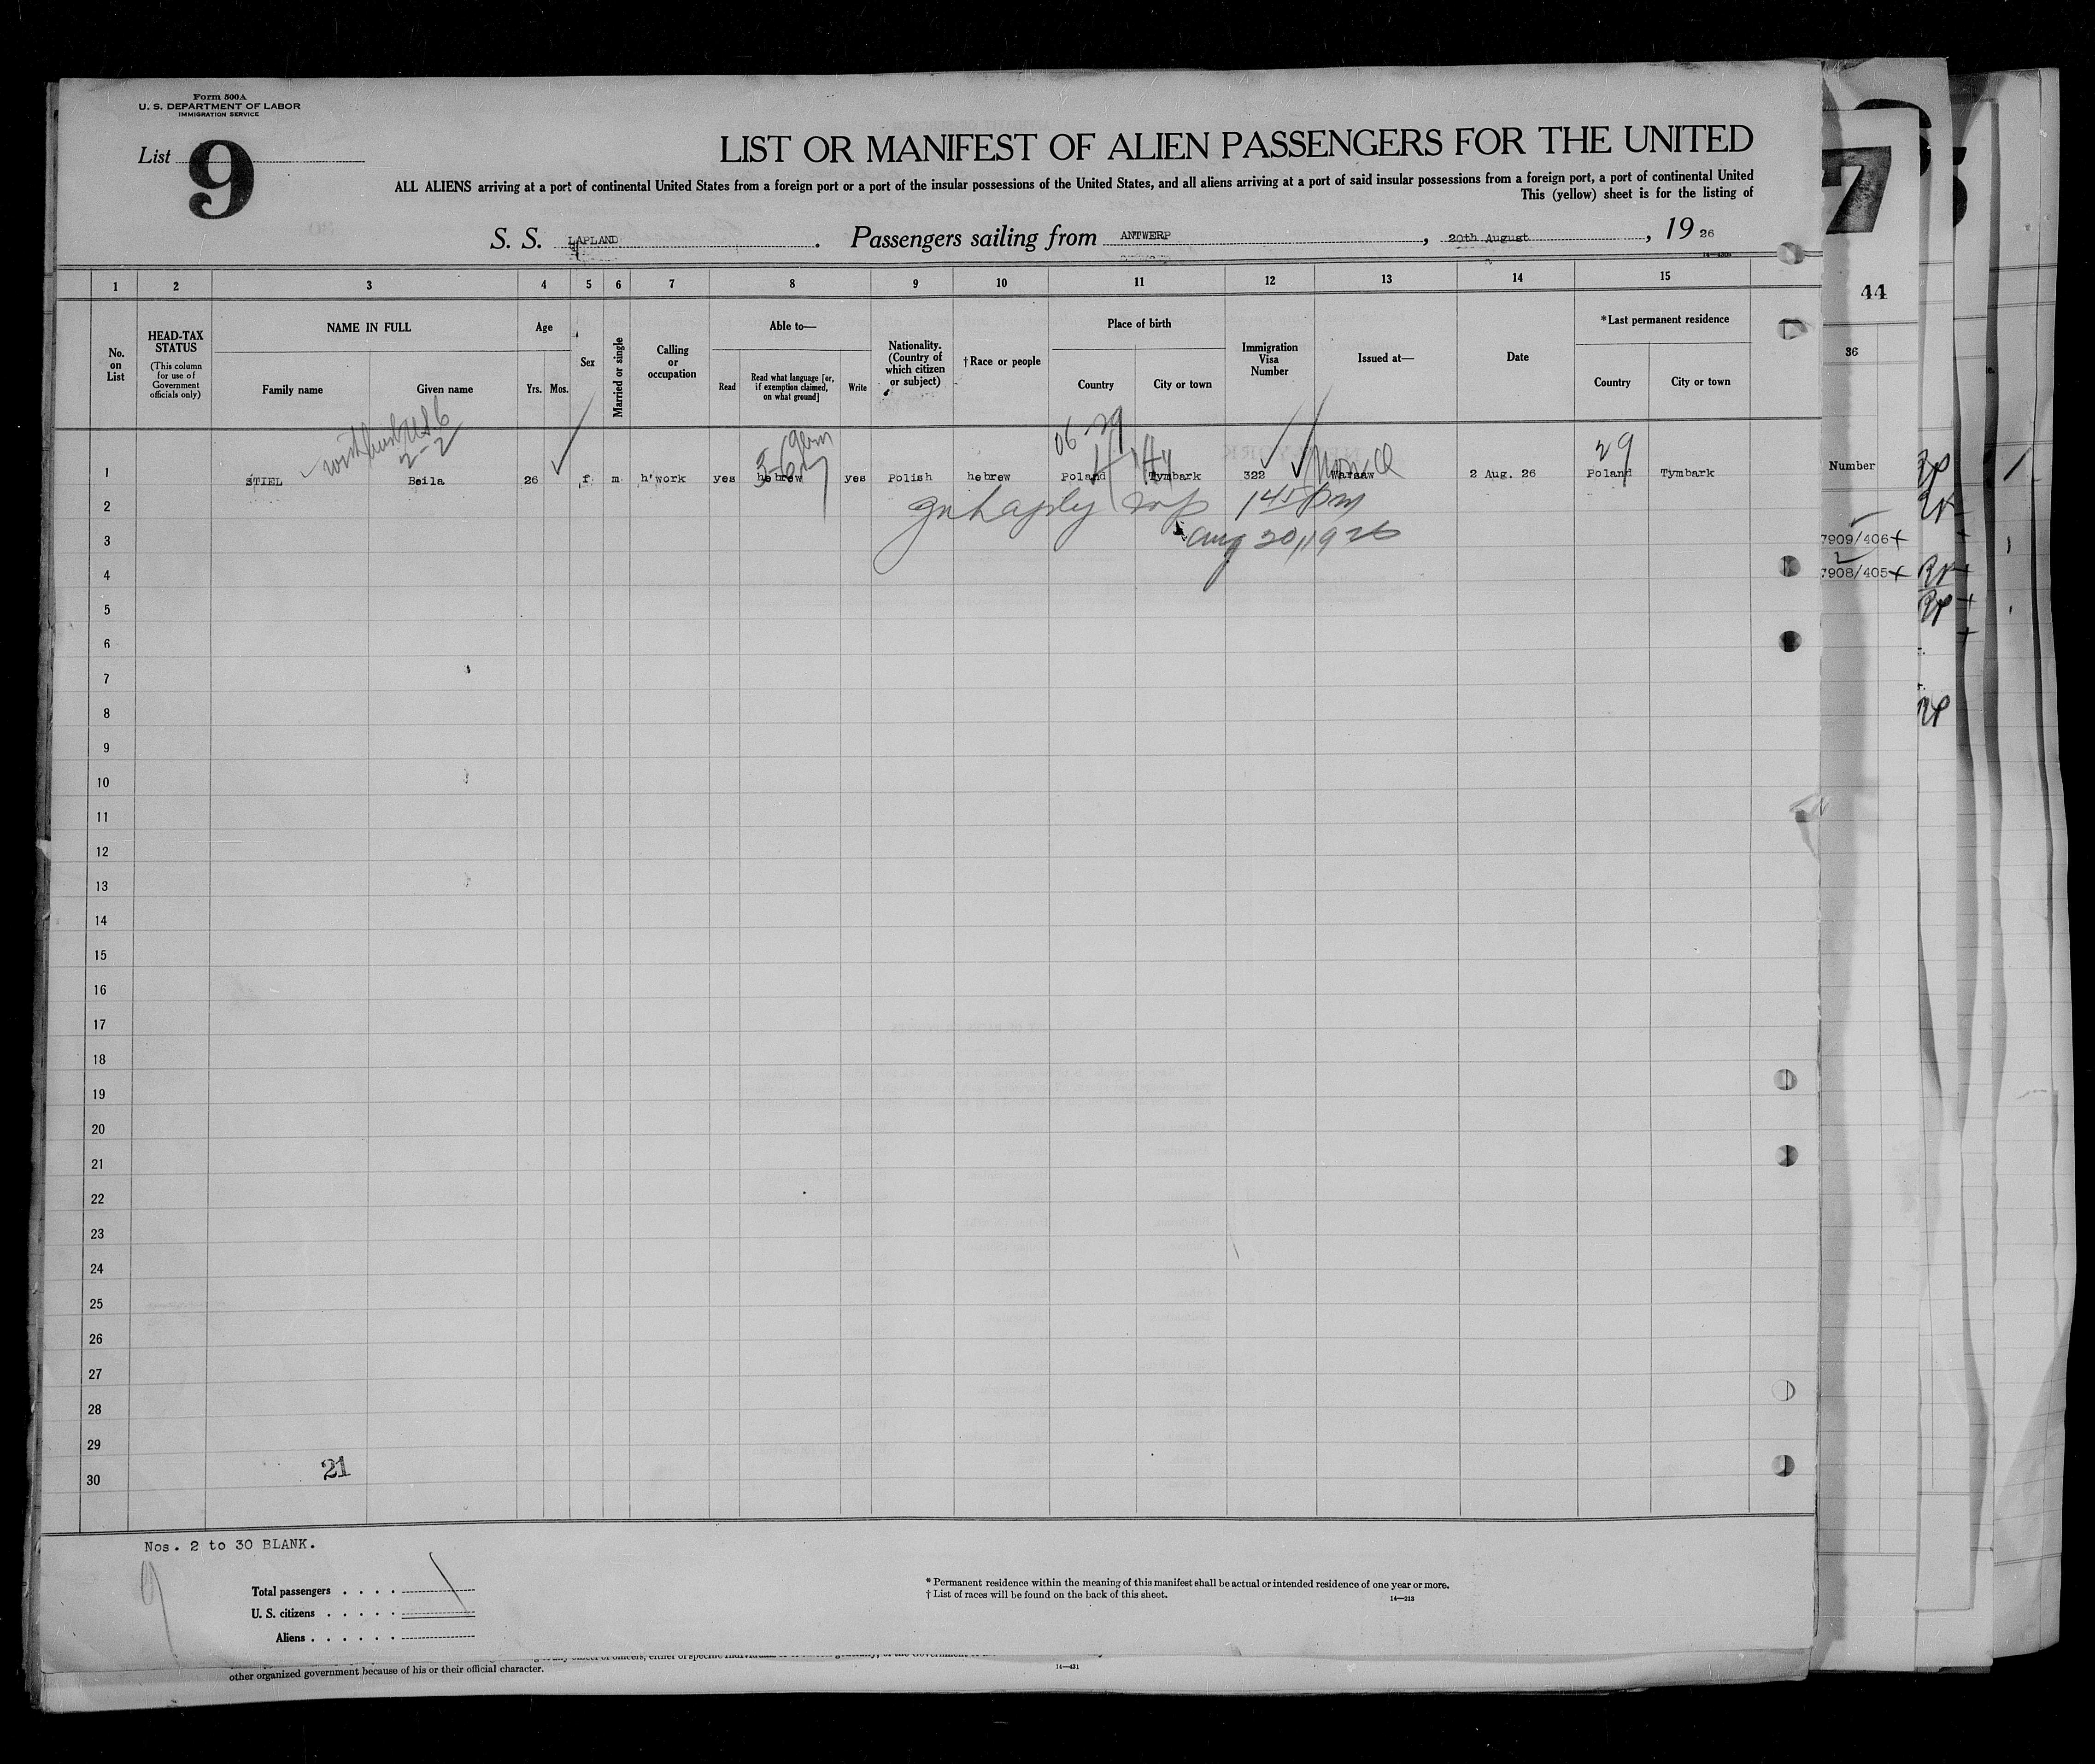 Form 500A
U. S. DEPARTMENT OF LABOR
IMMIGRATION SERVICE
List 9
LIST OR MANIFEST OF ALIEN PASSENGERS FOR THE UNITED
ALL ALIENS arriving at a port of continental United States from a foreign port or a port of the insular possessions of the United States, and all aliens arriving at a port of said insular possessions from a foreign port, a port of continental United
This (yellow) sheet is for the listing of
S. S. LAPLAND. Passengers sailing from ANTWERP, 20th August, 19 26
1 2 3 4 5 6 7 8 9 10 11 12 13 14 15
No. on List
HEAD-TAX STATUS
(This column for use of Government officials only)
NAME IN FULL
Family name
Given name
Age
Yrs. Mos.
Sex
Married or single
Calling or occupation
Able to—
Read
Read what language [or, if exemption claimed, on what ground]
Write
Nationality. (Country of which citizen or subject)
†Race or people
Place of birth
Country
City or town
Immigration Visa Number
Issued at—
Date
*Last permanent residence
Country
City or town
2-2
06-29
29
1 STIEL Beila 26 f m h'work yes hebrew yes Polish hebrew Poland Tymbark 322 Warsaw 2 Aug. 26 Poland Tymbark
2 1 45 pm
3 Aug 20, 1926
4
5
6
7
8
9
10
11
12
13
14
15
16
17
18
19
20
21
22
23
24
25
26
27
28
29
30
21
Nos. 2 to 30 BLANK.
9
Total passengers . . . .
U. S. citizens . . . . .
Aliens . . . . . .
* Permanent residence within the meaning of this manifest shall be actual or intended residence of one year or more.
† List of races will be found on the back of this sheet.
14—213
other organized government because of his or their official character.
14—431
7
44
36
Number
7909/406+
7908/405+